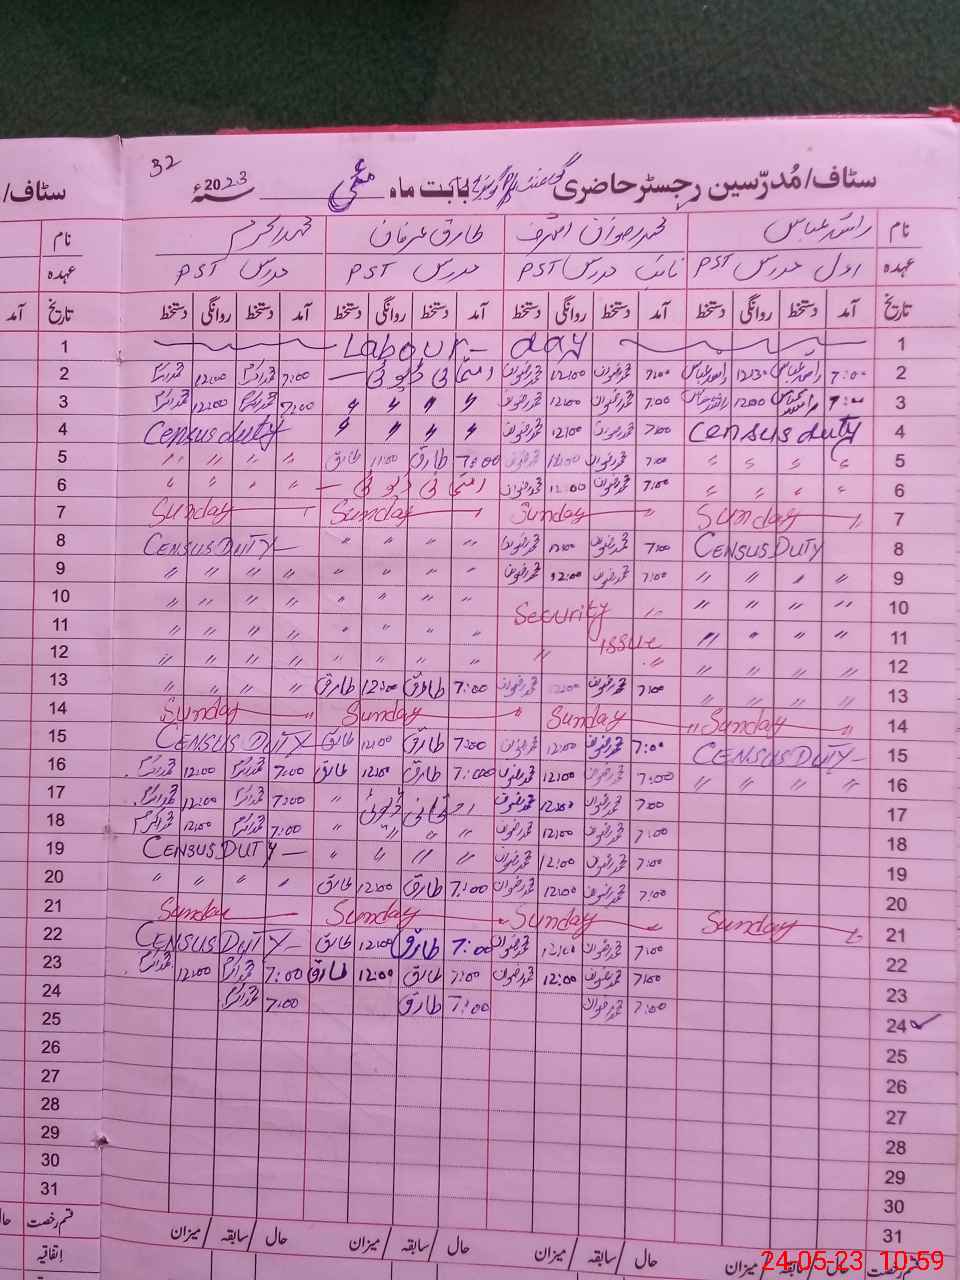 32
سٹاف/مُدرّسین رجسٹر حاضری گورنمنٹ بابت ماہ مئی سنہ 2023ء
سٹاف/
نام راشد عباس محمد رضوان اشرف طارق عرفان محمد اکرم نام
عہدہ اول مدرس PST نائب مدرس PST مدرس PST مدرس PST عہدہ
تاریخ آمد دستخط روانگی دستخط آمد دستخط روانگی دستخط آمد دستخط روانگی دستخط آمد دستخط روانگی دستخط تاریخ آمد
1 Labour day 1
2 7:00 راشد عباس 12:30 راشد عباس 7:00 محمد رضوان 12:00 محمد رضوان امتحانی ڈیوٹی 7:00 محمد اکرم 12:00 محمد اکرم 2
3 7:00 راشد عباس 12:00 راشد عباس 7:00 محمد رضوان 12:00 محمد رضوان 〃 〃 〃 〃 7:00 محمد اکرم 12:00 محمد اکرم 3
4 Census duty 7:00 محمد رضوان 12:00 محمد رضوان 〃 〃 〃 〃 Census duty 4
5 〃 〃 〃 〃 7:00 محمد رضوان 12:00 محمد رضوان 7:00 طارق 11:00 طارق 〃 〃 〃 〃 5
6 〃 〃 〃 〃 7:00 محمد رضوان 12:00 محمد رضوان امتحانی ڈیوٹی 〃 〃 〃 〃 6
7 Sunday Sunday Sunday Sunday 7
8 CENSUS DUTY 7:00 محمد رضوان 12:00 محمد رضوان 〃 〃 〃 〃 CENSUS DUTY 8
9 〃 〃 〃 〃 7:00 محمد رضوان 12:00 محمد رضوان 〃 〃 〃 〃 〃 〃 〃 〃 9
10 〃 〃 〃 〃 Security 〃 〃 〃 〃 〃 〃 〃 〃 10
11 〃 〃 〃 〃 issue 〃 〃 〃 〃 〃 〃 〃 〃 11
12 〃 〃 〃 〃 〃 〃 〃 〃 〃 〃 〃 〃 〃 〃 12
13 〃 〃 〃 〃 7:00 محمد رضوان 12:00 محمد رضوان 7:00 طارق 12:00 طارق 〃 〃 〃 〃 13
14 Sunday Sunday Sunday Sunday 14
15 CENSUS DUTY 7:00 محمد رضوان 12:00 محمد رضوان 7:00 طارق 12:00 طارق CENSUS DUTY 15
16 〃 〃 〃 〃 7:00 محمد رضوان 12:00 محمد رضوان 7:00 طارق 12:00 طارق 7:00 محمد اکرم 12:00 محمد اکرم 16
17 7:00 محمد رضوان 12:00 محمد رضوان امتحانی ڈیوٹی 〃 7:00 محمد اکرم 12:00 محمد اکرم 17
18 7:00 محمد رضوان 12:00 محمد رضوان 〃 〃 7:00 محمد اکرم 12:00 محمد اکرم 18
19 7:00 محمد رضوان 12:00 محمد رضوان 〃 〃 〃 〃 CENSUS DUTY 19
20 7:00 محمد رضوان 12:00 محمد رضوان 7:00 طارق 12:00 طارق 〃 〃 〃 〃 20
21 Sunday Sunday Sunday Sunday 21
22 7:00 محمد رضوان 12:00 محمد رضوان 7:00 طارق 12:00 طارق CENSUS DUTY 22
23 7:00 محمد رضوان 12:00 محمد رضوان 7:00 طارق 12:00 طارق 7:00 محمد اکرم 12:00 محمد اکرم 23
24 7:00 محمد رضوان 7:00 طارق 7:00 محمد اکرم 24
25 25
26 26
27 27
28 28
29 29
30 30
31 31
قسم رخصت حال سابقہ میزان حال سابقہ میزان حال سابقہ میزان حال سابقہ میزان قسم رخصت حال
اتفاقیہ
24-05-23 10:59